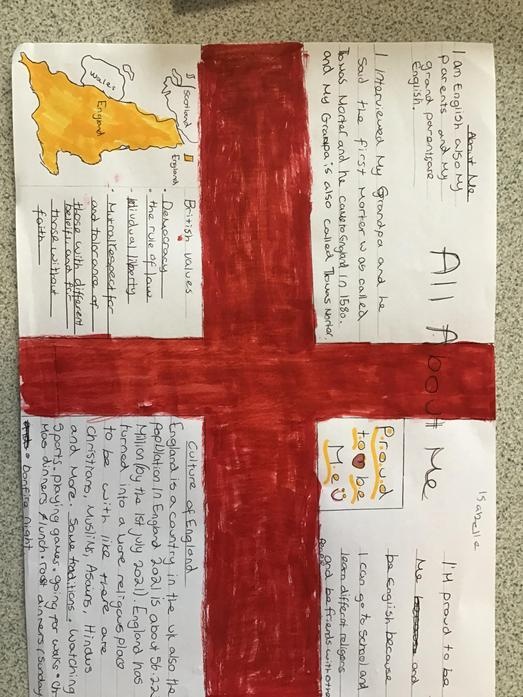 Isabelle
All About Me
About Me
I am English also My
parents and My
grand parents are
English.
I interviewed My Grandpa and he
Said the first Morter was called
Towas Morter and he came to England in 1580.
and My Grandpa is also called Thomas Morter.
Proud
to be
Me
I'M proud to be
Me and
be English because
I can go to School and
learn different religens
and be friends with
Scotland
Wales
England
England
British values
• Democracy
• the rule of law
• individual liberty
• Mutral respect for
and tolorance of
those with different
beleifs and for
those without
faith
Culture of England
England is a country in the uk also the
Population in England 2021 is about 56.22
Million (by the 1st july 2021) England has
turned into a More religous place
to be with like there are
Christians, Muslims, Asians, Hindus
and More. Some traditions. Watching
Sports, playing games. going for walks.
dinners /lunch. roast dinners/sunday
• bonfire night